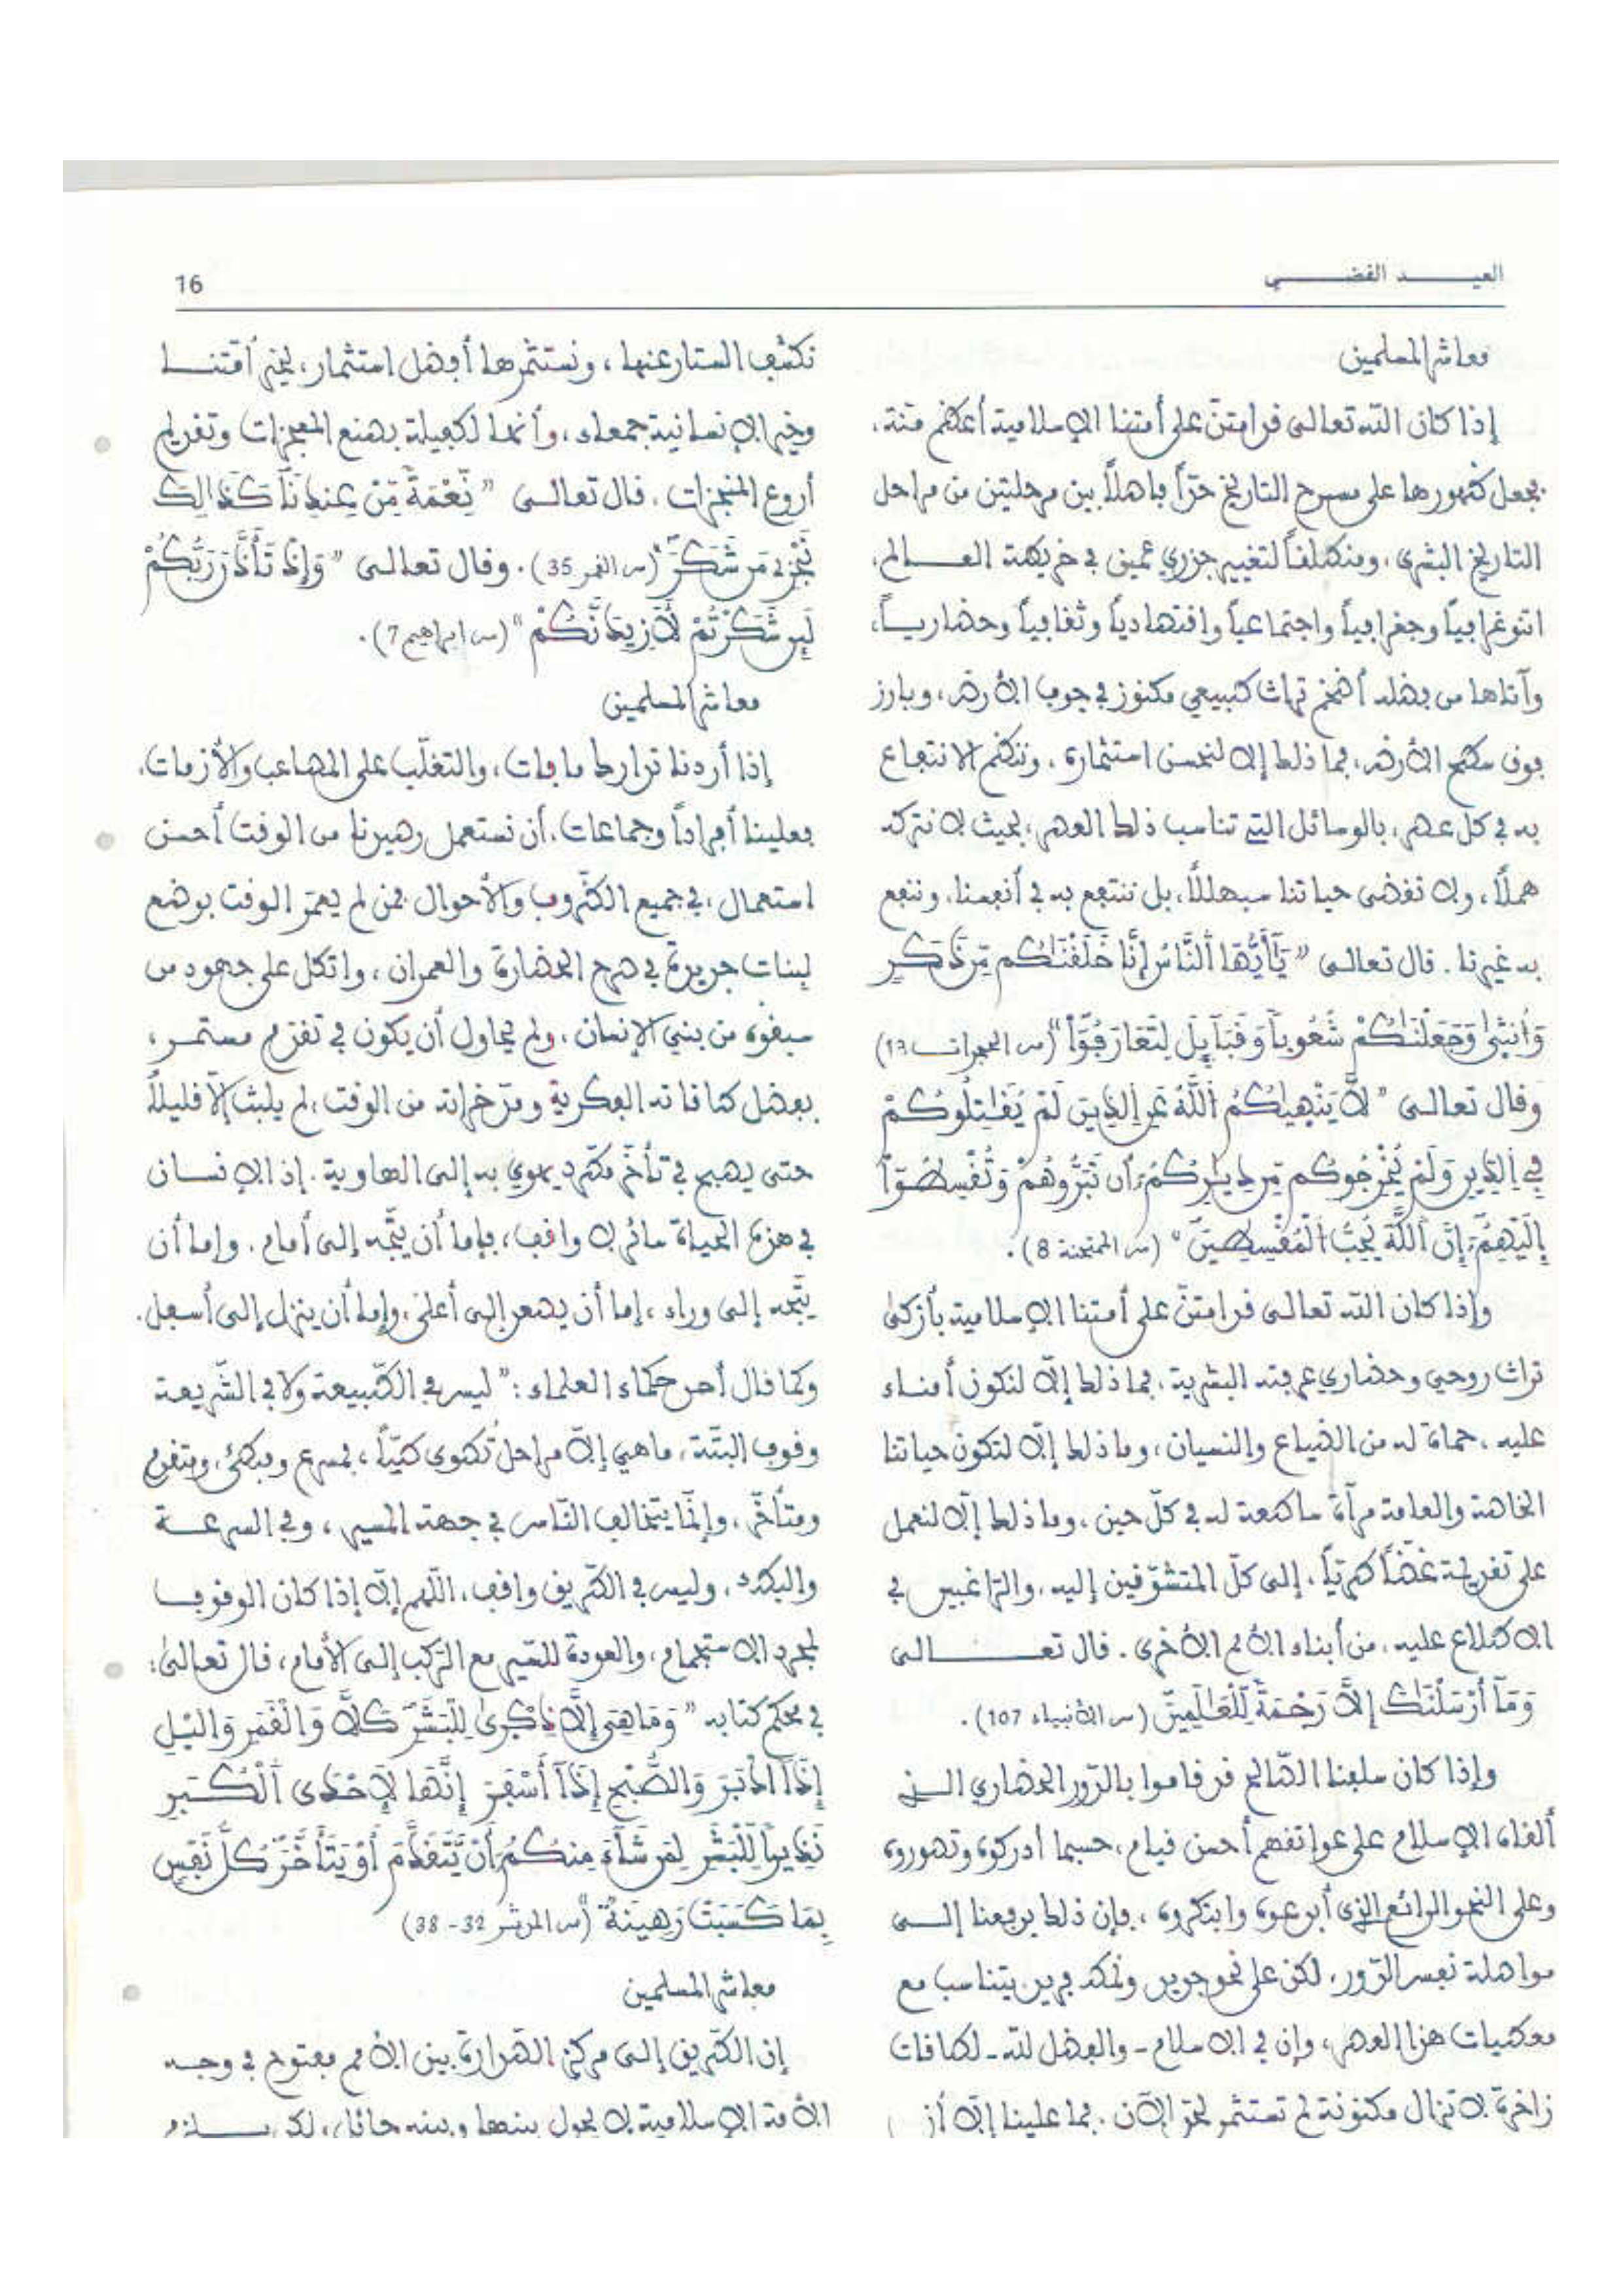 العيــــد الفضــــي
16
معاشر المسلمين
إذا كان الله تعالى قد امتنّ على أمتنا الإسلامية أعظم منة،
بجعل ظهورها على مسرح التاريخ حدّاً فاصلاً بين مرحلتين من مراحل
التاريخ البشري، ومنطلقاً لتغيير جذري عميق في خريطة العــالم،
اثنوغرافياً وجغرافياً واجتماعياً واقتصادياً وثقافياً وحضاريــاً،
وآتاها من فضله أضخم تراث طبيعي مكنوز في جوف الأرض، وبارز
فوق سطح الأرض، فما ذلك إلا لنحسن استثماره، وننظم الانتفاع
به في كل عصر، بالوسائل التي تناسب ذلك العصر، بحيث لا نتركه
هملاً، ولا نقضي حياتنا سبهللاً، بل ننتفع به في أنفسنا، وننفع
به غيرنا. قال تعالى "يَٰٓأَيُّهَا ٱلنَّاسُ إِنَّا خَلَقْنَٰكُم مِّن ذَكَرٍ
وَأُنثَىٰ وَجَعَلْنَٰكُمْ شُعُوباً وَقَبَآئِلَ لِتَعَارَفُوٓاْ" (س الحجرات 13)
وقال تعالى "لَّا يَنْهَيٰكُمُ ٱللَّهُ عَنِ ٱلذِينَ لَمْ يُقَٰتِلُوكُمْ
فِي ٱلدِّينِ وَلَمْ يُخْرِجُوكُم مِّن دِيَٰرِكُمُۥٓ أَن تَبَرُّوهُمْ وَتُقْسِطُوٓاْ
إِلَيْهِمُۥٓ إِنَّ ٱللَّهَ يُحِبُّ ٱلْمُقْسِطِينَ" (س الممتحنة 8).
وإذا كان الله تعالى قد امتنّ على أمتنا الإسلامية بأزكى
تراث روحي وحضاري عرفته البشرية، فما ذلك إلاّ لنكون أمناء
عليه، حماة له من الضياع والنسيان، وما ذلك إلاّ لتكون حياتنا
الخاصة والعامة مرآة ساطعة له في كلّ حين، وما ذلك إلاّ لنعمل
على تقديمه غضّاً طريّاً، إلى كلّ المتشوّقين إليه، والرّاغبين في
الاطلاع عليه، من أبناء الأمم الأخرى. قال تعــــالى
وَمَآ أَرْسَلْنَٰكَ إِلَّا رَحْمَةً لِّلْعَٰلَمِينَ (س الأنبياء 107).
وإذا كان سلفنا الصّالح قد قاموا بالدّور الحضاري الــذي
ألقاه الإسلام على عواتقهم أحسن قيام، حسبما أدركوه وتصوروه
وعلى النحو الرائع الذي أبدعوه وابتكروه، فإن ذلك يدفعنا إلــى
مواصلة نفس الدّور، لكن على نحو جديد ونمط فريد، يتناسب مع
معطيات هذا العصر، وإن في الإسلام - والفضل لله - لطاقات
زاخرة لا تزال مكنونة لم تستثمر لحدّ الآن. فما علينا إلاّ أن
نكشف الستار عنها، ونستثمرها أفضل استثمار، لخير أمّتنــا
وخير الإنسانية جمعاء، وأنها لكفيلة بصنع المعجزات وتقديم
أروع المنجزات. قال تعالى "نِّعْمَةً مِّنْ عِندِنَا كَذَٰلِكَ
نَجْزِي مَن شَكَرَ" (س القمر 35). وقال تعالى "وَإِذْ تَأَذَّنَ رَبُّكُمْ
لَئِن شَكَرْتُمْ لَأَزِيدَنَّكُمْ" (س ابراهيم 7).
معاشر المسلمين
إذا أردنا تدارك ما فات، والتغلّب على المصاعب والأزمات،
فعلينا أفراداً وجماعات، أن نستعمل رصيدنا من الوقت أحسن
استعمال، في جميع الظّروف والأحوال فمن لم يعمّر الوقت بوضع
لبنات جديدة في صرح الحضارة والعمران، واتكل على جهود من
سبقوه من بني الإنسان، ولم يحاول أن يكون في تقدم مستمــر،
بفضل طاقاته الفكرية ومدّخراته من الوقت، لم يلبث إلاّ قليلاً
حتى يصبح في تأخّر مطّرد يهوي به إلى الهاوية. إذ الإنســان
في هذه الحياة سائر لا واقف، فإما أن يتّجه إلى أمام، وإما أن
يتّجه إلى وراء، إما أن يصعد إلى أعلى، وإما أن ينزل إلى أسفل.
وكما قال أحد حكماء العلماء: "ليس في الطّبيعة ولا في الشّريعة
وقوف البتّة، ما هي إلاّ مراحل تُطوى طيّاً، فمسرع ومبطئ، ومتقدم
ومتأخّر، وإنّما يتخالف النّاس في جهة المسير، وفي السرعــة
والبطء، وليس في الطّريق واقف، اللّهم إلاّ إذا كان الوقوف
لمجرد الاستجمام، والعودة للسّير مع الرّكب إلى الأمام، قال تعالى:
في محكم كتابه "وَمَا هِيَ إِلَّا ذِكْرَىٰ لِلْبَشَرِ كَلَّا وَالْقَمَرِ وَالَيْلِ
إِذَ اَدْبَرَ وَالصُّبْحِ إِذَآ أَسْفَرَ إِنَّهَا لَإِحْدَى ٱلْكُبَرِ
نَذِيراً لِّلْبَشَرِ لِمَن شَآءَ مِنكُمُۥٓ أَنْ يَّتَقَدَّمَ أَوْ يَتَأَخَّرَ كُلُّ نَفْسٍ
بِمَا كَسَبَتْ رَهِينَةٌ" (س المدثر 32 - 38)
معاشر المسلمين
إن الطّريق إلى مركز الصّدارة بين الأمم مفتوح في وجــه
الأمة الإسلامية لا يحول بينها وبينه حائل، لكن يــلزم